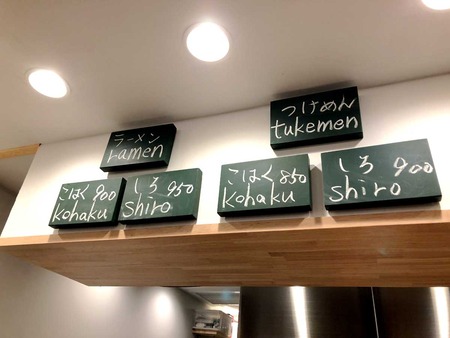 ラーメン
ramen
こはく 900
kohaku
しろ 950
shiro
つけめん
tukemen
こはく 850
kohaku
しろ 900
shiro